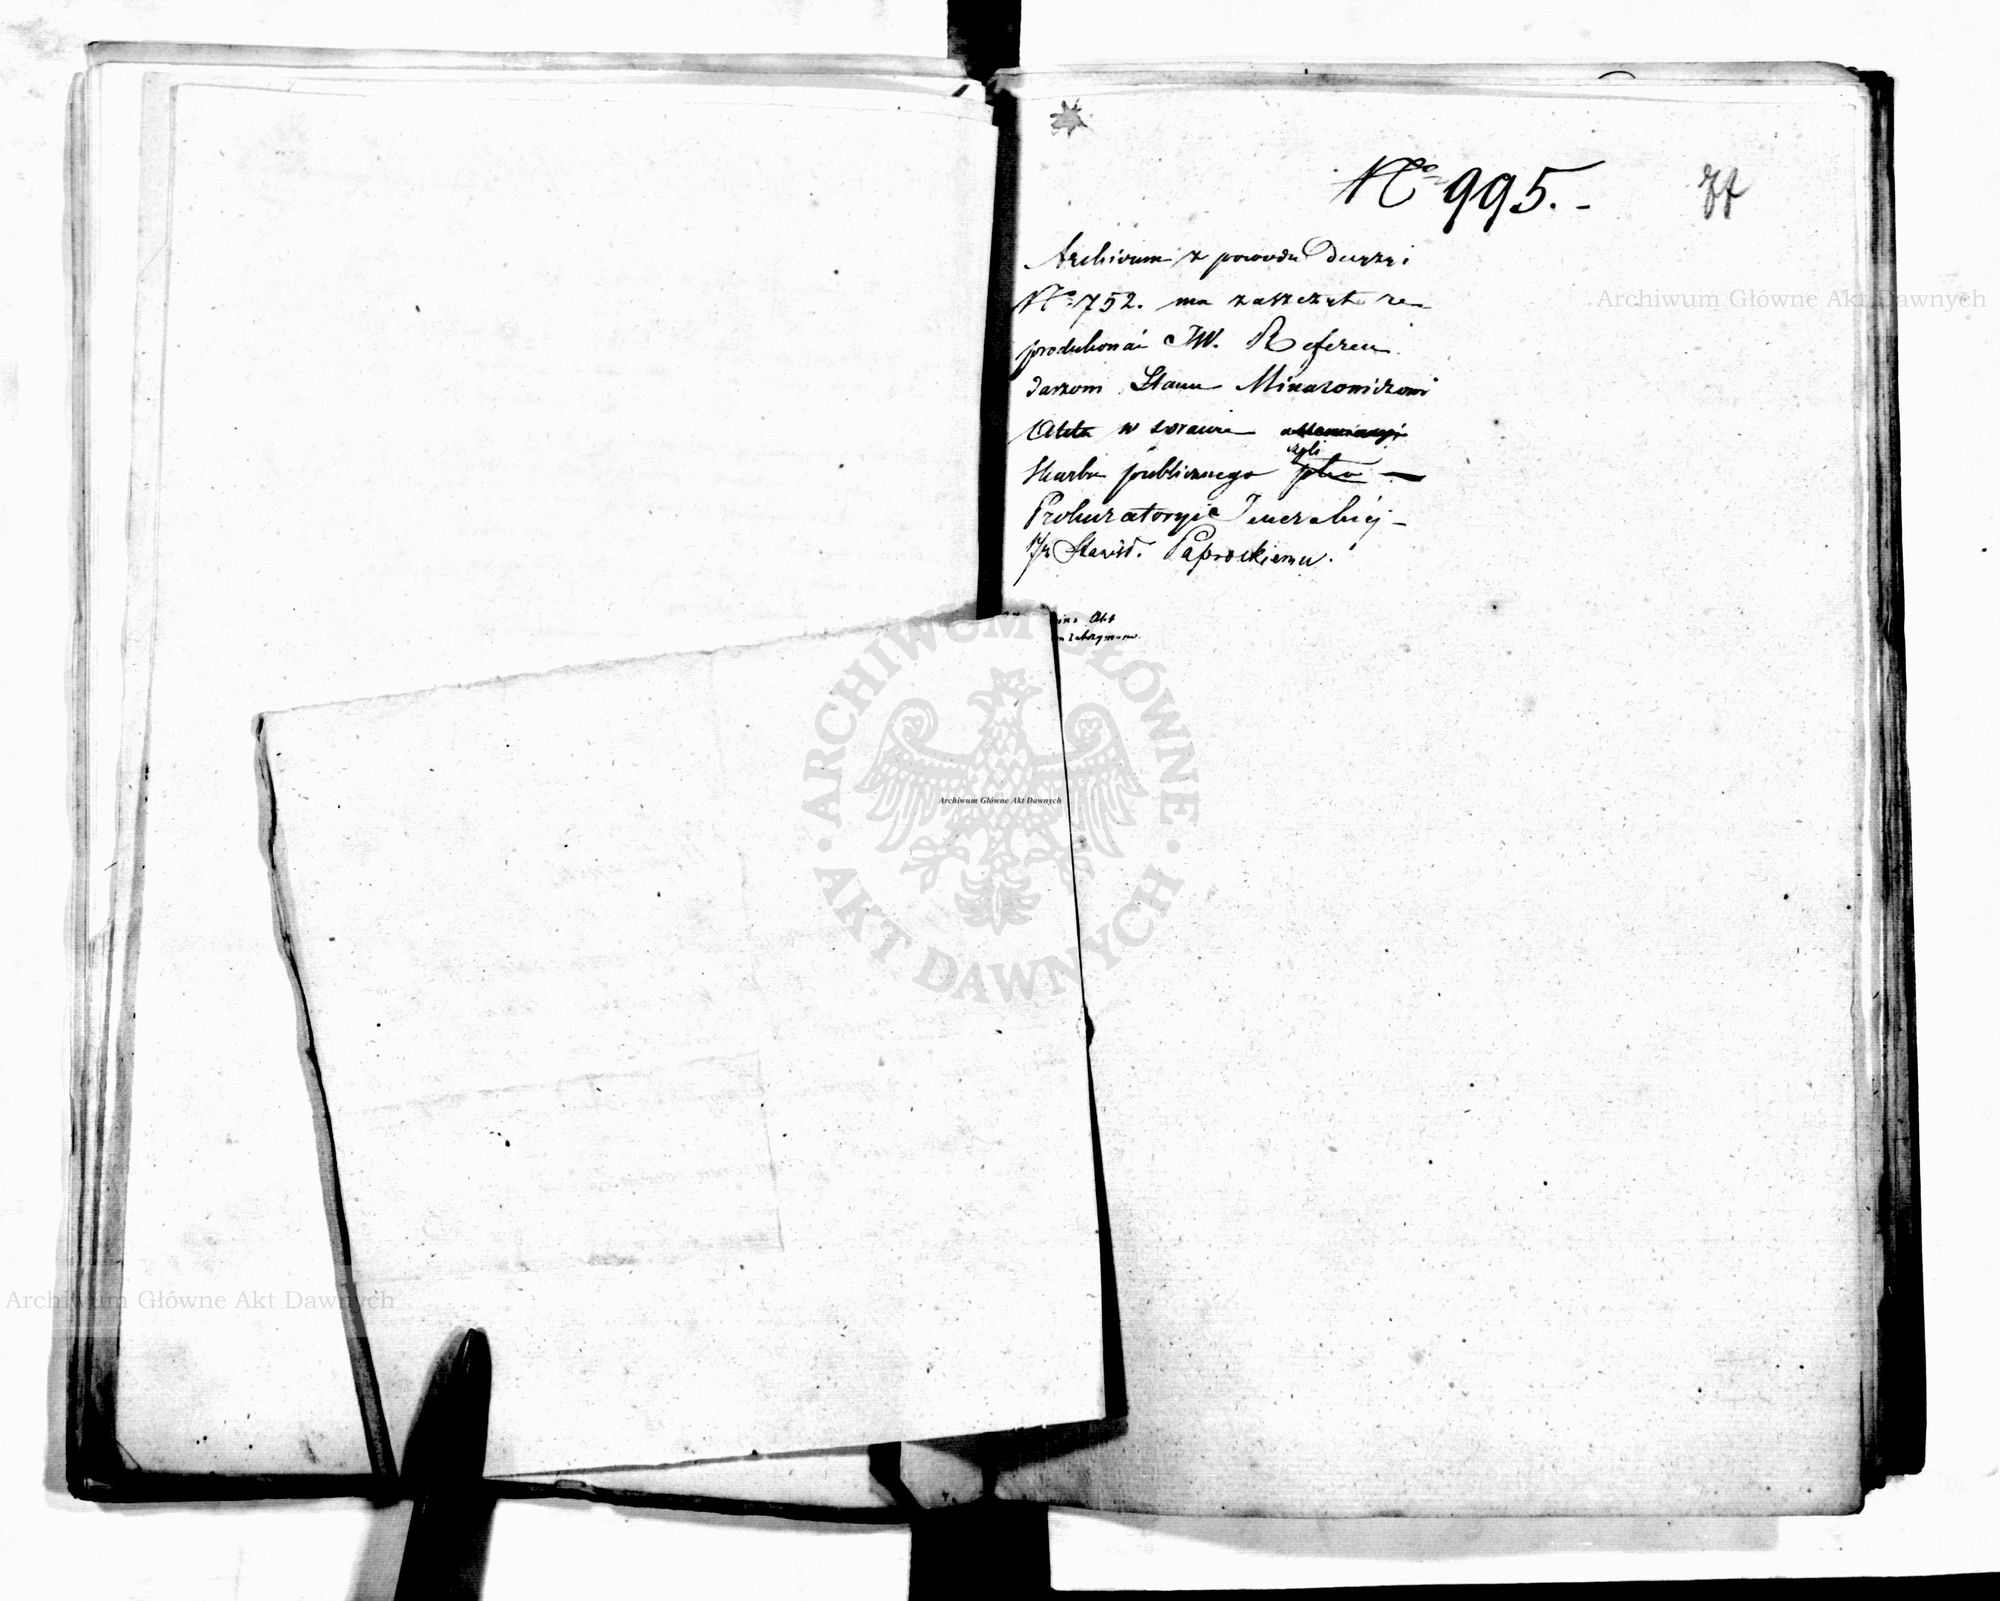 No 995. -
77
Archivum z powodu Decyzyi
No 752. ma zaszczyt re-
produkować JW. Referen
darzom Stanu Minasowiczowi
Akta w sprawie
Skarbu publicznego czyli
Prokuratoryi Jeneralnej -
Stanisł. Paprockiemu.
Akt
Archiwum Główne Akt Dawnych
ARCHIWUM GŁÓWNE
AKT DAWNYCH
Archiwum Główne Akt Dawnych
Archiwum Główne Akt Dawnych